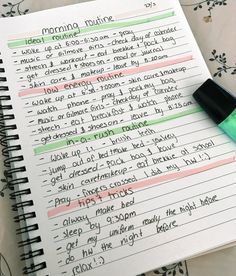 23/3
morning routine
ideal routine
- wake up at 6:00-6:30am - pray
- music or gilmore girls - check day of calendar
- stretch & workout - eat breakfast & pack bag
- get dressed & shoes on - read or journal
- skin care & makeup - leave by 8:20am
low energy routine
- wake up at - 7:00am - skin care & makeup
- watch phone - pray - pack my bag
- music or gilmore girls - check day of calendar
- stretch - eat breakfast - watch phone
- get dressed & shoes on - leave by 8:25am
in-a-rush routine
- wake up !! - brush teeth
- jump out of bed & make bed - spotify
- get dressed - pack bag & have
- skin care & makeup - eat breakfast @ school
- pray - fingers crossed i did my hw! :)
tips & tricks
- always make bed
- sleep by 9:30pm
- get my uniform ready the night before
- do hw the night before
- relax! :)